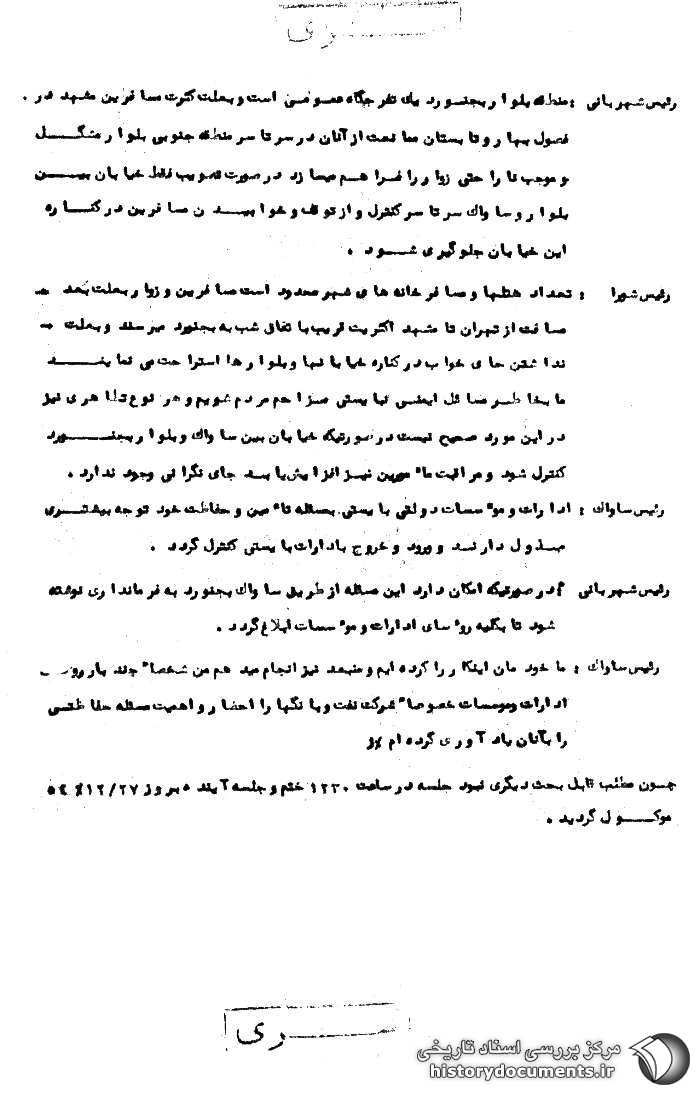 ســـــری
رئیس شهربانی : منطقه بلوار بجنورد یک تفرجگاه عمومی است و بعلت کثرت مسافرین مشهد در
فصول بهار و تابستان ممانعت از آنان در سرتاسر منطقه جنوبی بلوار مشگـــل
و موجب نارا حتی زوار را فراهم میسازد در صورت تصویب فقط خیابان بیـــن
بلوار و ساواک سرتاسر کنترل و از توقف و خوابیـــدن مسافرین در کنـــاره
این خیابان جلوگیری شـــود .
رئیس شورا : تعداد هتلها و مسافرخانه های شهر محدود است مسافرین و زوار بعلت بعد
مسافت از تهران تا مشهد اکثریت قریب باتفاق شب به بجنورد میرسند و بعلت
نداشتن جای خواب در کناره خیابانها و بلوارها استراحت می نماینـــد
ما بخاطر مسائل ایمنی نبایستی مزاحم مردم شویم و هر نوع تظاهری نیز
در این مورد صحیح نیست در صورتیکه خیابان بین ساواک و بلوار بجنـــورد
کنترل شود و مراقبت مامورین نیـز افزایش یابـد جای نگرانی وجود ندارد .
رئیس ساواک : ادارات و موسسات دولتی بایستی بمسئله تامین و حفاظت خود توجه بیشتـــری
مبذول دارنـد و ورود و خروج بادارات بایستی کنترل گردد .
رئیس شهربانی : در صورتیکه امکان دارد این مسئله از طریق ساواک بجنورد به فرمانداری نوشته
شود تا بکلیه روسای ادارات و موسسات ابلاغ گردد .
رئیس ساواک : ما خودمان اینکار را کرده ایم و منبعد نیز انجام میدهم من شخصا چند بار
ادارات و موسسات خصوصا شرکت نفت و بانکها را احضار و اهمیت مسئله حفاظتی
را بآنان یادآوری کرده ام
چـون مطلب قابل بحث دیگری نبود جلسه در ساعت ۱۲۳۰ ختم و جلسه آینده بروز ۱۲/۲۷
موکـــول گردید .
ســـــری
مرکز بررسی اسناد تاریخی
historydocuments.ir